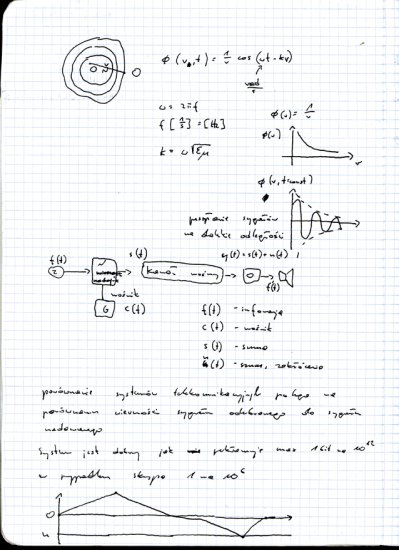 ϕ(r,t) = 1/r cos(ωt - kr)
rad/s
ω = 2πf
f [1/s] = [Hz]
k = ω√εμ
ϕ(r) = 1/r
ϕ(r)
r
ϕ(r, t=const)
przesyłanie sygnałów
na dalekie odległości
f(t) s(t) y(t) = s(t) + n(t)
kanał f(t)
nośnik
G c(t)
f(t) - informacja
c(t) - nośnik
s(t) - suma
n(t) - szumy, zakłócenia
porównanie systemów telekomunikacyjnych polega na
porównaniu wierności sygnału odebranego do sygnału
nadawanego
system jest dobry jak max 1 bit na 10^12
w przypadku skypa 1 na 10^6
0